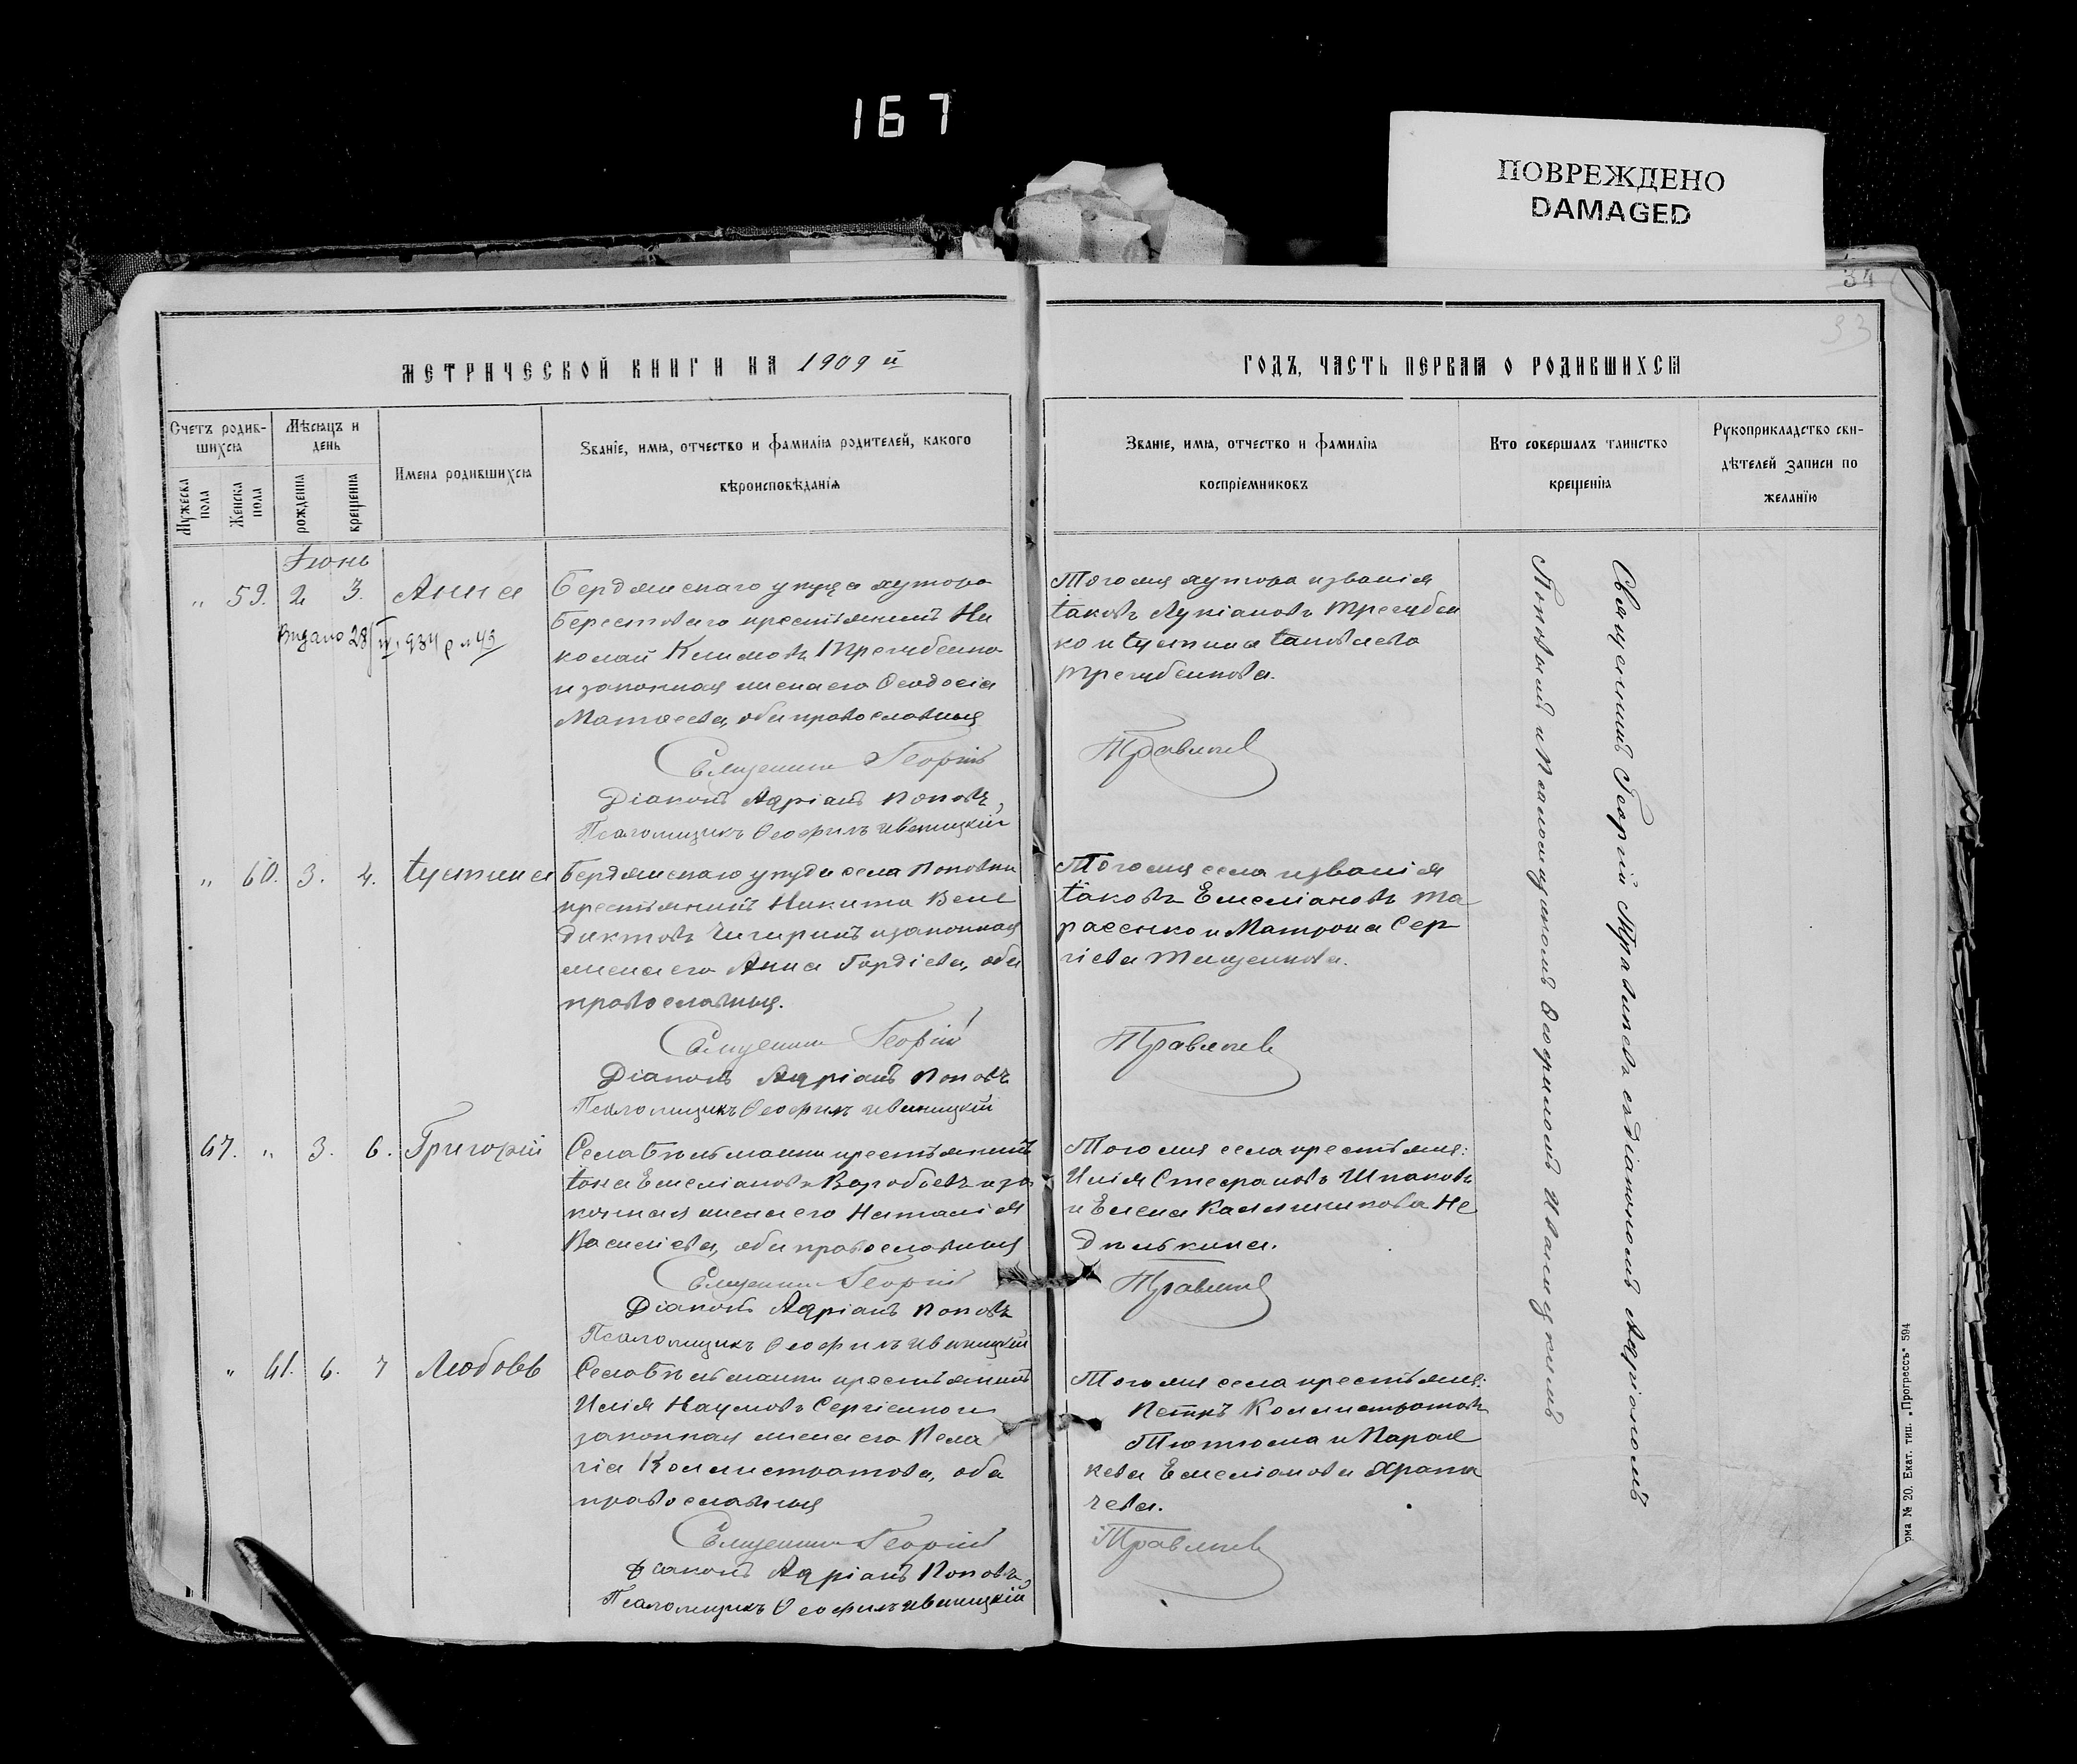 167
ПОВРЕЖДЕНО
DAMAGED
34
33
МЕТРИЧЕСКОЙ КНИГИ НА 1909 й
ГОДЪ, ЧАСТЬ ПЕРВАЯ О РОДИВШИХСЯ
Счетъ родив-
шихся
Мужеска пола
Женска пола
Мѣсяцъ и
день
рожденія
крещенія
Имена родившихся
Званіе, имя, отчество и фамилія родителей, какого
вѣроисповѣданія
Званіе, имя, отчество и фамилія
воспріемниковъ
Кто совершалъ таинство
крещенія
Рукоприкладство сви-
дѣтелей записи по
желанію
Іюнь
„ 59. 2 3. Анна
Выдано 28
Бердянскаго уѣзда хутора
Берестоваго крестьянинъ Ни
колай Климовъ Трегубенко
и законная жена его Ѳеодосія
Матѳеева, оба православныя
Священникъ Георгій
Діаконъ Адріанъ Поповъ,
Псаломщикъ Ѳеофилъ Иваницкій
Того же хутора и званія
Іаковъ Лукіановъ Трегубен
ко и Іустина Іаковлева
Трегубенкова.
Правилев
„ 60. 3. 4. Іустина
Бердянскаго уѣзда села Поповки
крестьянинъ Никита Вене
диктовъ Чигиринъ и законная
жена его Анна Гордіева, оба
православныя.
Священникъ Георгій
Діаконъ Адріанъ Поповъ
Псаломщикъ Ѳеофилъ Иваницкій
Того же села и званія
Іаковъ Емеліановъ Та
расенко и Матрона Сер
гіева Тищенкова.
67. „ 3. 6. Григорій
Села Бѣльманки крестьянинъ
Іона Емеліановъ Воробьевъ и за
конная жена его Наталія
Василіева, оба православныя
Священникъ Георгій
Діаконъ Адріанъ Поповъ
Псаломщикъ Ѳеофилъ Иваницкій
Того же села крестьяне:
Илія Стефановъ Шпаковъ
и Елена Калинникова Не
дѣлькина.
„ 61. 6. 7 Любовь
Села Бѣльманки крестьянинъ
Илія Наумовъ Сергіенко и
законная жена его Пела
гія Коллистратова, оба
православныя
Священникъ Георгій
Діаконъ Адріанъ Поповъ,
Псаломщикъ Ѳеофилъ Иваницкій
Того же села крестьяне:
Петръ Коллистратовъ
Тютюма и Парас
кева Емеліанова Храпа
чева.
Священникъ Георгій съ діакономъ Адріаномъ
Поповымъ и Псаломщикомъ Ѳеофиломъ Иваницкимъ
рма № 20. Екат. тип. „Прогрессъ" 594